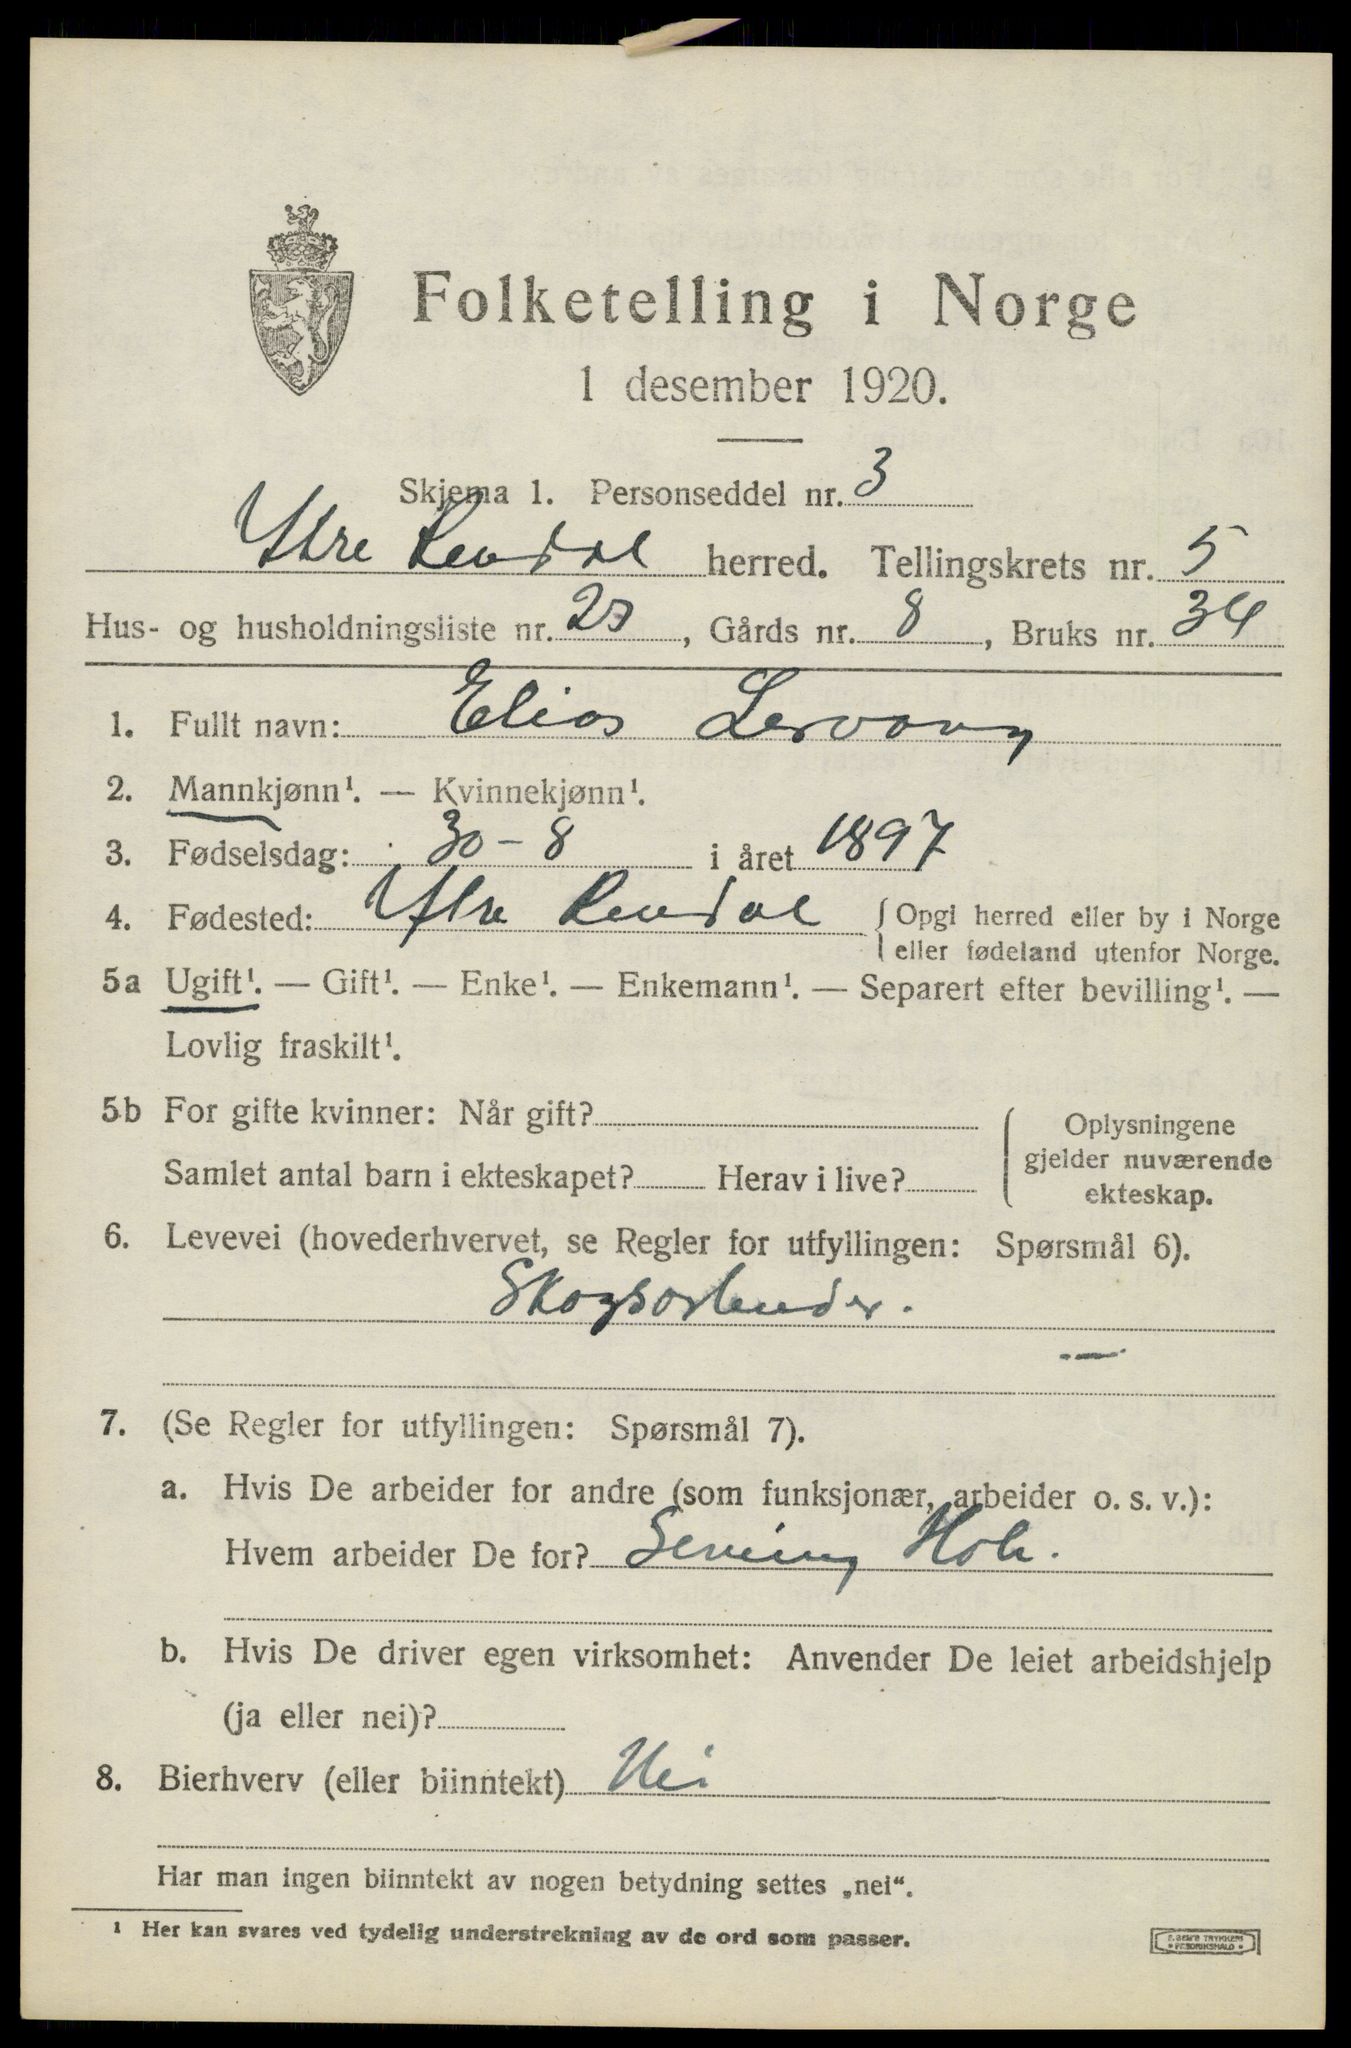 Folketelling i Norge
1 desember 1920.
Skjema 1. Personseddel nr. 3
Ytre Rendal herred. Tellingskrets nr. 5
Hus- og husholdningsliste nr. 23, Gårds nr. 8, Bruks nr. 34
1. Fullt navn: Elias Lervang
2. Mannkjønn¹. — Kvinnekjønn¹.
3. Fødselsdag: 30-8 i året 1897
4. Fødested: Ytre Rendal { Opgi herred eller by i Norge
eller fødeland utenfor Norge.
5a Ugift¹. — Gift¹. — Enke¹. — Enkemann¹. — Separert efter bevilling¹. —
Lovlig fraskilt¹.
5b For gifte kvinner: Når gift?
Oplysningene
gjelder nuværende
ekteskap.
Samlet antal barn i ekteskapet? Herav i live?
6. Levevei (hovederhvervet, se Regler for utfyllingen: Spørsmål 6).
Skogsarbeider.
7. (Se Regler for utfyllingen: Spørsmål 7).
a. Hvis De arbeider for andre (som funksjonær, arbeider o. s. v.):
Hvem arbeider De for?
b. Hvis De driver egen virksomhet: Anvender De leiet arbeidshjelp
(ja eller nei)?
8. Bierhverv (eller biinntekt) Nei
Har man ingen biinntekt av nogen betydning settes „nei“.
¹ Her kan svares ved tydelig understrekning av de ord som passer.